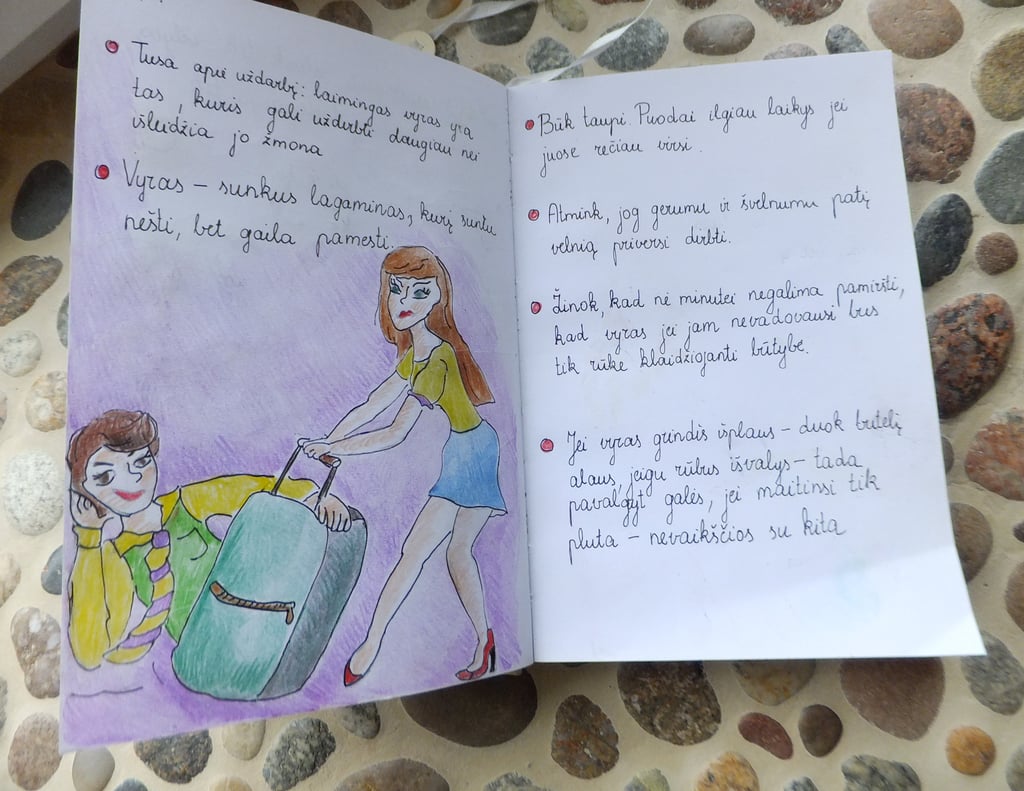 Tiesa apie uždarbį: laimingas vyras yra
tas, kuris gali uždirbti daugiau nei
išleidžia jo žmona
Vyras – sunkus lagaminas, kurį sunku
nešti, bet gaila pamesti.
Būk taupi. Puodai ilgiau laikys jei
juose rečiau virsi.
Atmink, jog gerumu ir švelnumu patį
velnią priversi dirbti.
Žinok, kad nė minutei negalima pamiršti,
kad vyras jei jam nevadovausi bus
tik rūke klaidžiojanti būtybė.
Jei vyras grindis išplaus – duok butelį
alaus, jeigu rūbus išvalys – tada
pavalgyt galės, jei maitinsi tik
pluta – nevaikščios su kita